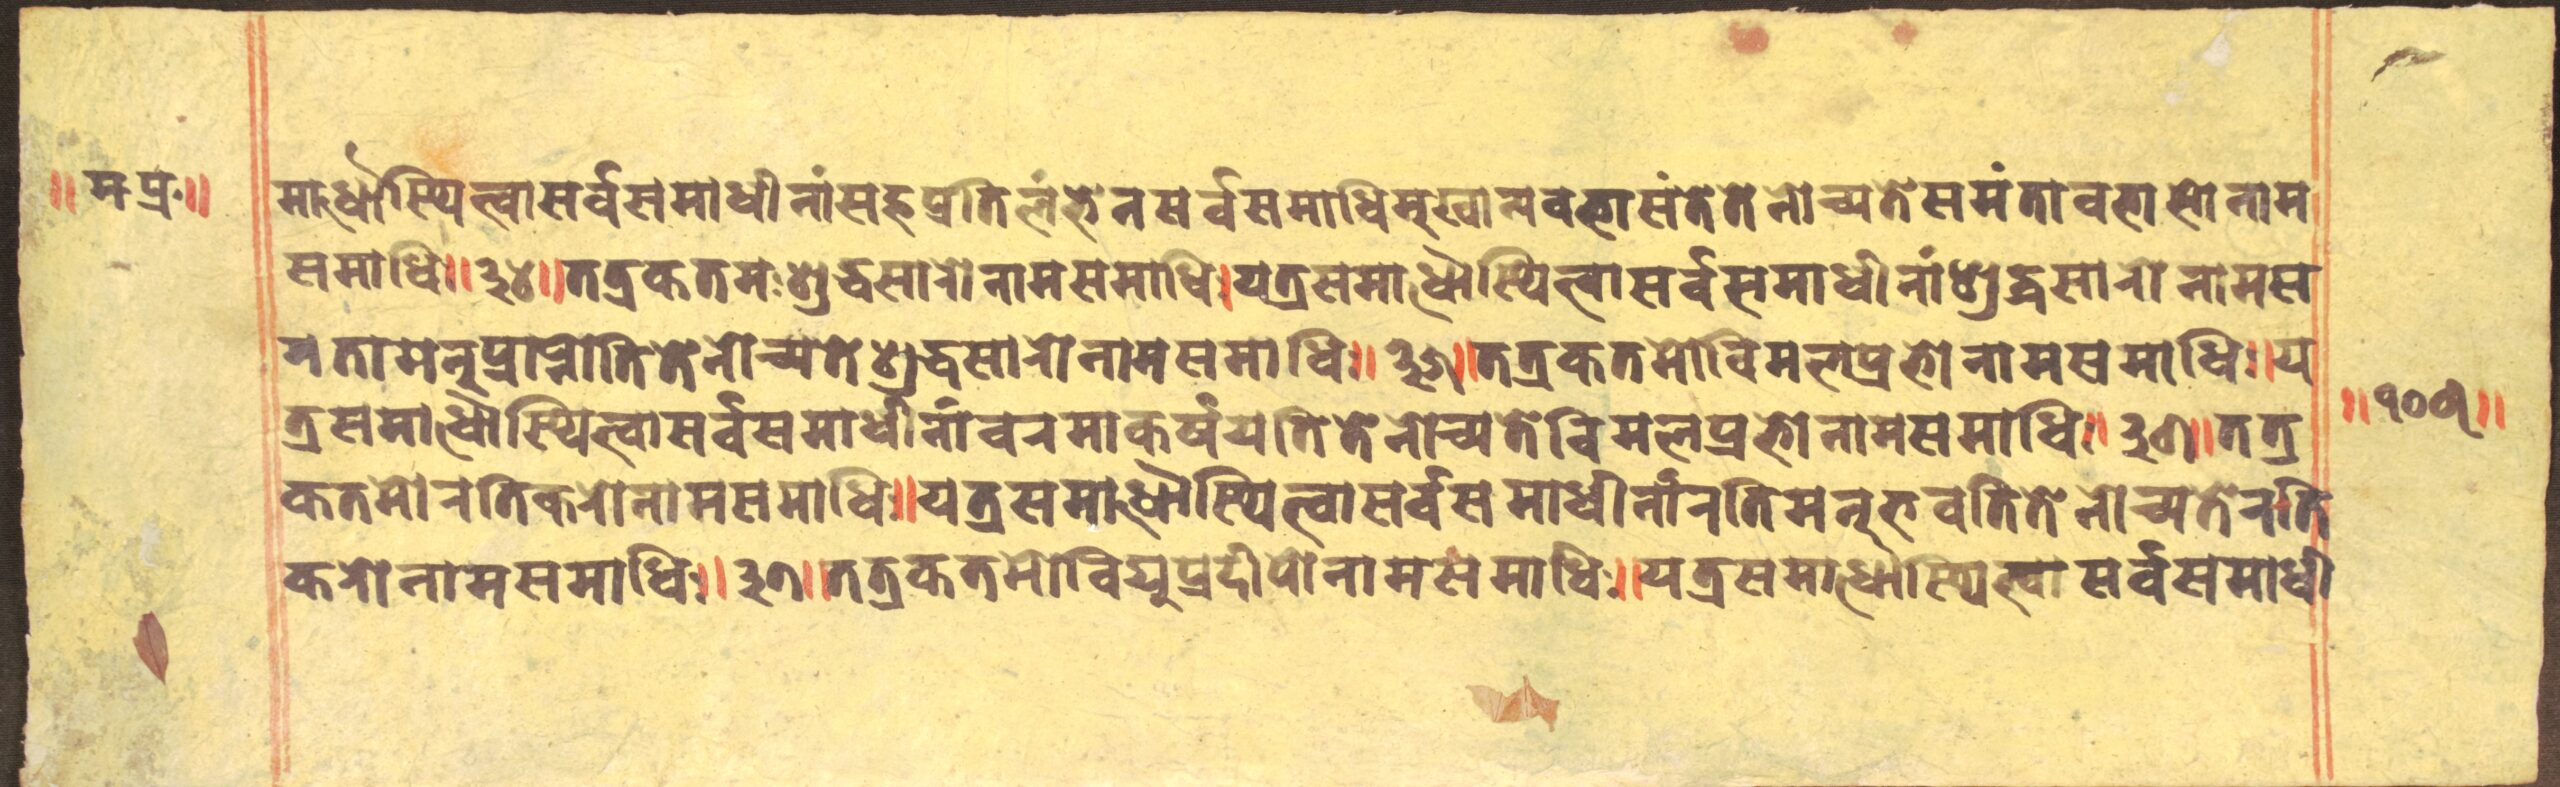 ॥ मप्रः॥
माधौस्थित्वासर्वसमाधीनांसहप्रतिलंभेनसर्वसमाधिमुखान्यवभासंतेतेनोच्यतेसमंतावभासोनाम
समाधिः॥३४॥तत्रकतमःशुद्धसारोनामसमाधिः।यत्रसमाधौस्थित्वासर्वसमाधीनांशुद्धसारोनामस
मतामनुप्राप्नोतितेनोच्यतेशुद्धसारोनामसमाधिः॥३५॥तत्रकतमोविमलप्रभोनामसमाधिः॥य
त्रसमाधौस्थित्वासर्वसमाधीनांवरमाकर्षयतितेनोच्यतेविमलप्रभोनामसमाधिः॥३६॥तत्र
कतमोरतिकरोनामसमाधिः॥यत्रसमाधौस्थित्वासर्वसमाधीनांरतिमनुभवतितेनोच्यतेरति
करोनामसमाधिः॥३७॥तत्रकतमोविद्युप्रदीपोनामसमाधिः॥यत्रसमाधौस्थित्वासर्वसमाधी
॥१०६॥